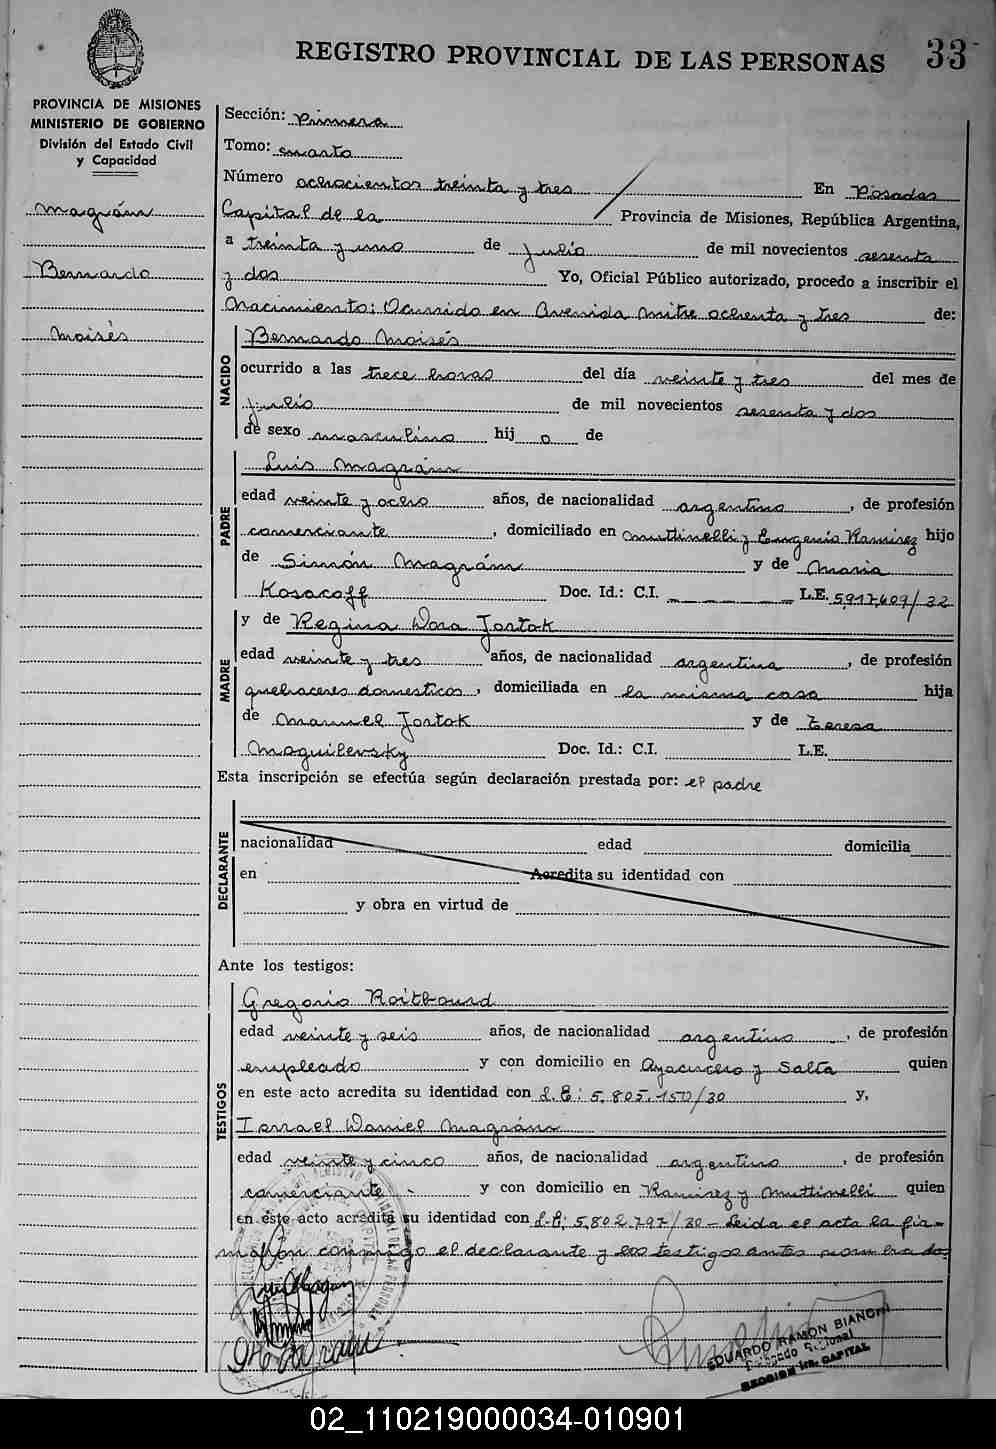 REGISTRO PROVINCIAL DE LAS PERSONAS 33
PROVINCIA DE MISIONES
MINISTERIO DE GOBIERNO
División del Estado Civil
y Capacidad
Magrám
Bernardo
Moisés
Sección: Primera
Tomo: cuarto
Número ochocientos treinta y tres En Posadas
Capital de la Provincia de Misiones, República Argentina,
a treinta y uno de julio de mil novecientos sesenta
y dos Yo, Oficial Público autorizado, procedo a inscribir el
Nacimiento: Ocurrido en Avenida Mitre ochenta y tres de:
NACIDO
Bernardo Moisés
ocurrido a las trece horas del día veinte y tres del mes de
julio de mil novecientos sesenta y dos
de sexo masculino hij o de
PADRE
Luis Magrám
edad veinte y ocho años, de nacionalidad argentino, de profesión
comerciante, domiciliado en Muttinelli y Eugenio Ramirez hijo
de Simón Magrám y de Maria
Kosacoff Doc. Id.: C.I. L.E. 5.917.609/32
MADRE
y de Regina Dora Jortok
edad veinte y tres años, de nacionalidad argentina, de profesión
quehaceres domesticos, domiciliada en la misma casa hija
de Manuel Jortok y de Teresa
Moguilevsky Doc. Id.: C.I. L.E.
Esta inscripción se efectúa según declaración prestada por: el padre
DECLARANTE
nacionalidad edad domicilia
en Acredita su identidad con
y obra en virtud de
Ante los testigos:
TESTIGOS
Gregorio Roitbourd
edad veinte y seis años, de nacionalidad argentino, de profesión
empleado y con domicilio en Ayacucho y Salta quien
en este acto acredita su identidad con L.E: 5.805.150/30 y,
Israel Daniel Magrám
edad veinte y cinco años, de nacionalidad argentino, de profesión
comerciante y con domicilio en Ramirez y Muttinelli quien
en este acto acredita su identidad con L.E; 5.802.797/30 - Leida el acta la fir-
man conmigo el declarante y los testigos antes nombrados
EDUARDO RAMON BIANCHI
Delegado Regional
SECCION 1ra. CAPITAL
02_110219000034-010901